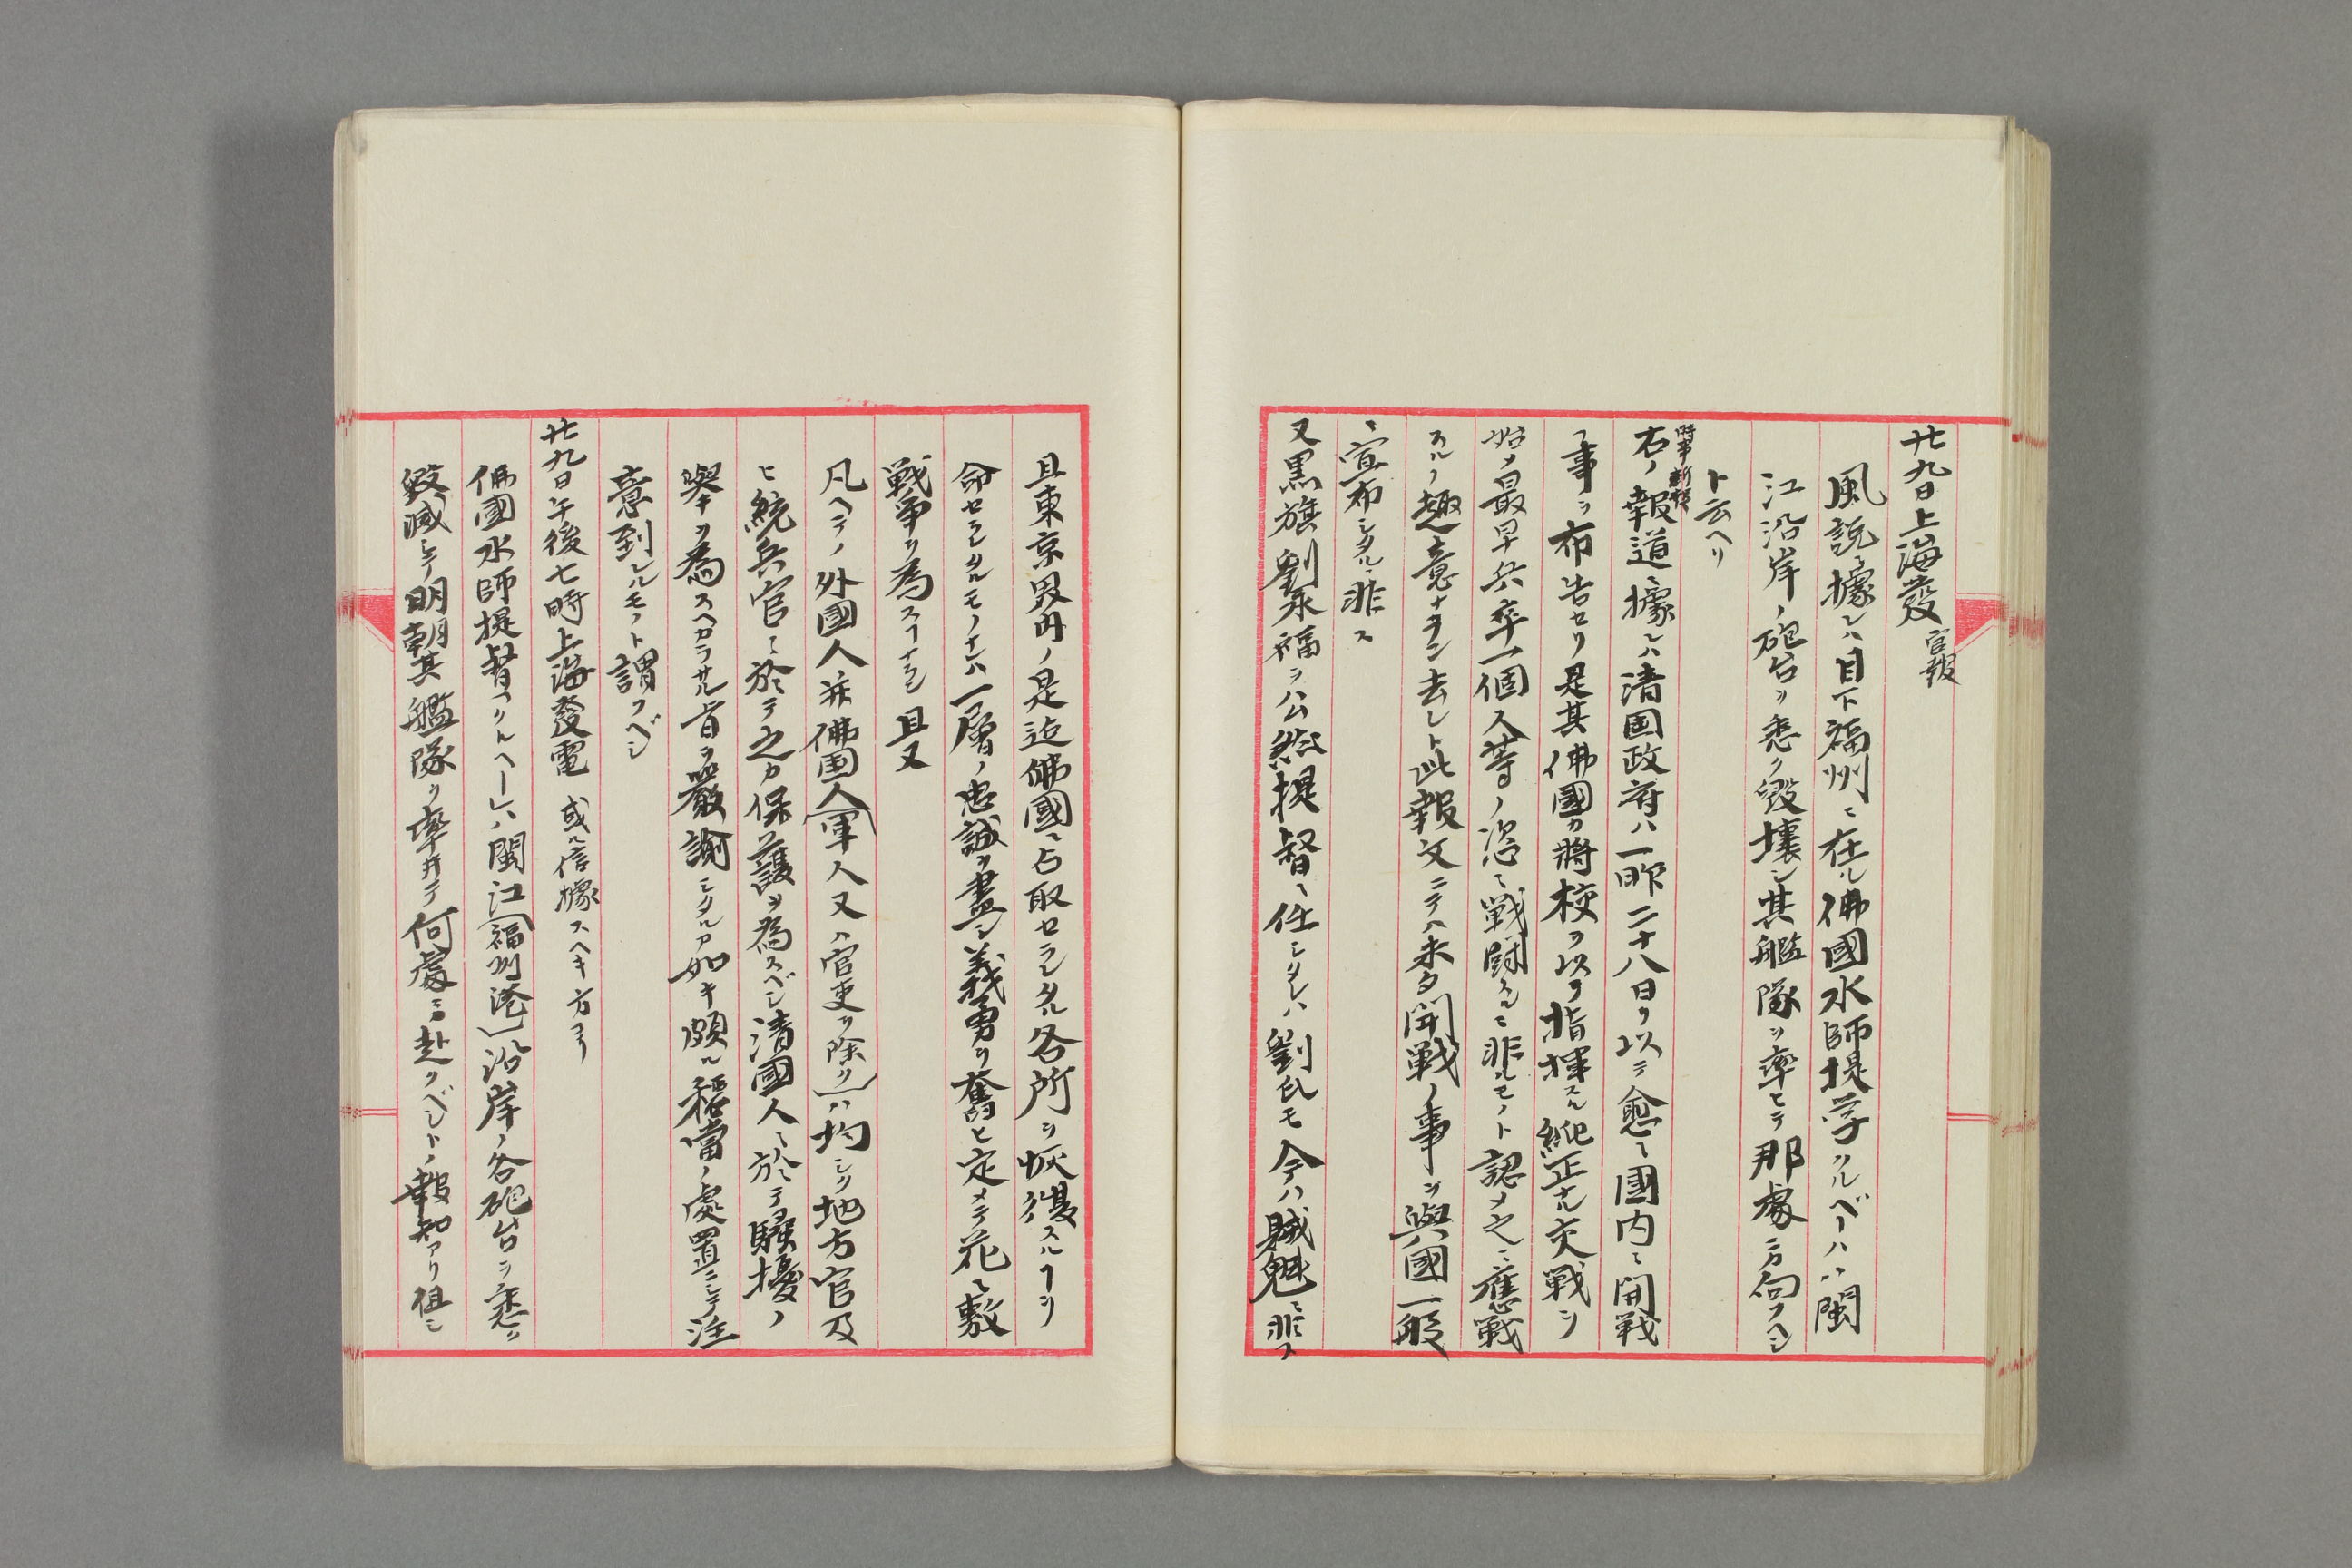 廿九日上海發 官報
風説ニ據レハ目下福州ニ在ル佛國水師提学クルベーハハ閩
江沿岸ノ砲台ヲ悉ク毀壊シ其艦隊ヲ率ヒテ那處ニカ向フヘシ
ト云ヘリ
時事新報
右ノ報道ニ據レハ清国政府ハ一昨二十八日ヲ以テ愈々國内ニ開戦
ノ事ヲ布告セリ是其佛國カ將校ヲ以テ指揮スル純正ナル交戦ヲ
始メ最早兵卒一個人等ノ恣ニ戦闘スルニ非ルモノト認メ之ニ應戦
スルノ趣意ナラン去レト此報文ニテハ未タ開戦ノ事ヲ與國一般
ニ宣布シタルニ非ス
又黒旗劉永福ヲ公然提督ニ任シタレハ劉氏モ今テハ賊魁ニ非ス
且東京界内ノ是迄佛國ニ占取セラレタル各所ヲ恢復スルヿヲ
命セラレタルモノナレハ一層ノ忠誠ヲ盡シ義勇ヲ奮ヒ定メテ花々敷
戦争ヲ為スナラン 且又
凡ヘテノ外國人并佛國人(軍人又ハ官吏ヲ除ク)ハ均シク地方官及
ヒ統兵官ニ於テ之カ保護ヲ為スベシ清國人ニ於テ騒擾ノ
擧ヲ為スヘカラサル旨ヲ嚴諭シタルカ如キ頗ル穏當ノ處置ニシテ注
意到レルモノト謂フベシ
廿九日午後七時上海發電 或ル信據スヘキ方ヨリ
佛國水師提督クルヘーレハ閩江(福州港)沿岸ノ各砲台ヲ悉ク
毀滅シテ明朝其艦隊ヲ率ヰテ何處ニカ赴クベシトノ報知アリ但シ